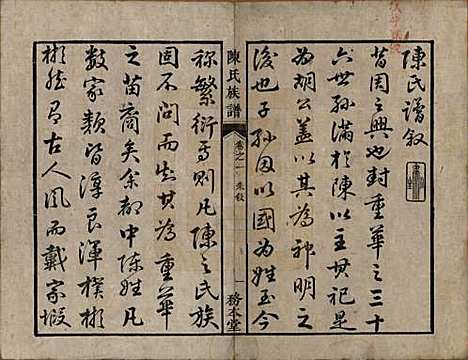 陳氏譜叙
昔周之興也封重華之三十
六世孫滿於陳以主其祀是
為胡公蓋以其為神明之
後也子孫因以國為姓至今
陳氏族譜
卷之一
一
務本堂
称繁衍焉則凡陳之民族
固不問而知其為重華
之苗裔矣余都中陳姓凡
數家類皆淳良渾樸彬
彬然有古人風而戴家塅